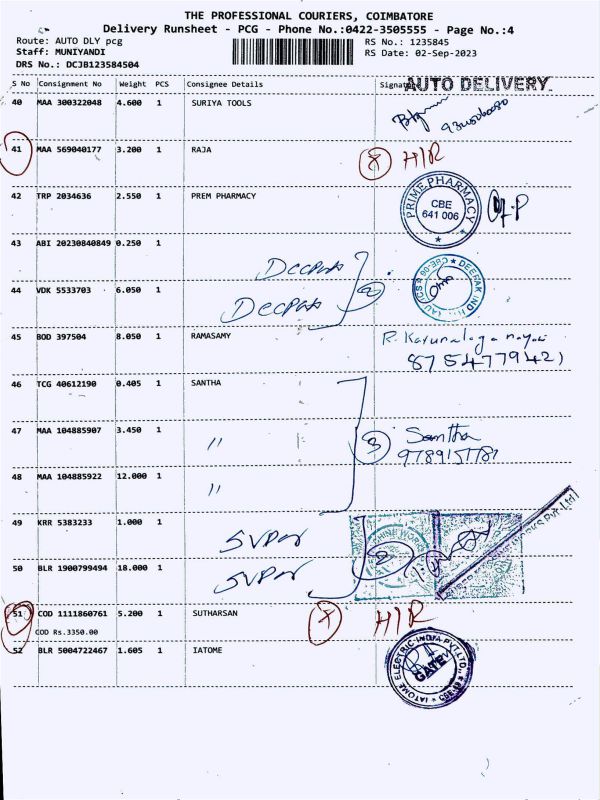 THE PROFESSIONAL COURIERS, COIMBATORE
Delivery Runsheet - PCG - Phone No.:0422-3505555 - Page No.:4
Route: AUTO DLY pcg
RS No.: 1235845
Staff: MUNIYANDI
RS Date: 02-Sep-2023
DRS No.: DCJB123584504
S No Consignment No Weight PCS Consignee Details Signature
AUTO DELIVERY
40 MAA 300322048 4.600 1 SURIYA TOOLS
41 MAA 569040177 3.200 1 RAJA
X H/R
42 TRP 2034636 2.550 1 PREM PHARMACY
PRIME PHARMACY
CBE
641 006
43 ABI 20230840849 0.250 1
Deepak
44 VDK 5533703 6.050 1
Deepak
2
45 BOD 397504 8.050 1 RAMASAMY
8754779421
46 TCG 40612190 0.405 1 SANTHA
47 MAA 104885907 3.450 1 〃
3 Santha
48 MAA 104885922 12.000 1 〃
49 KRR 5383233 1.000 1
50 BLR 1900799494 18.000 1
2
51 COD 1111860761 5.200 1 SUTHARSAN
X H/R
COD Rs.3350.00
52 BLR 5004722467 1.605 1 IATOME
IATOME ELECTRIC INDIA PVT.LTD.
GATE